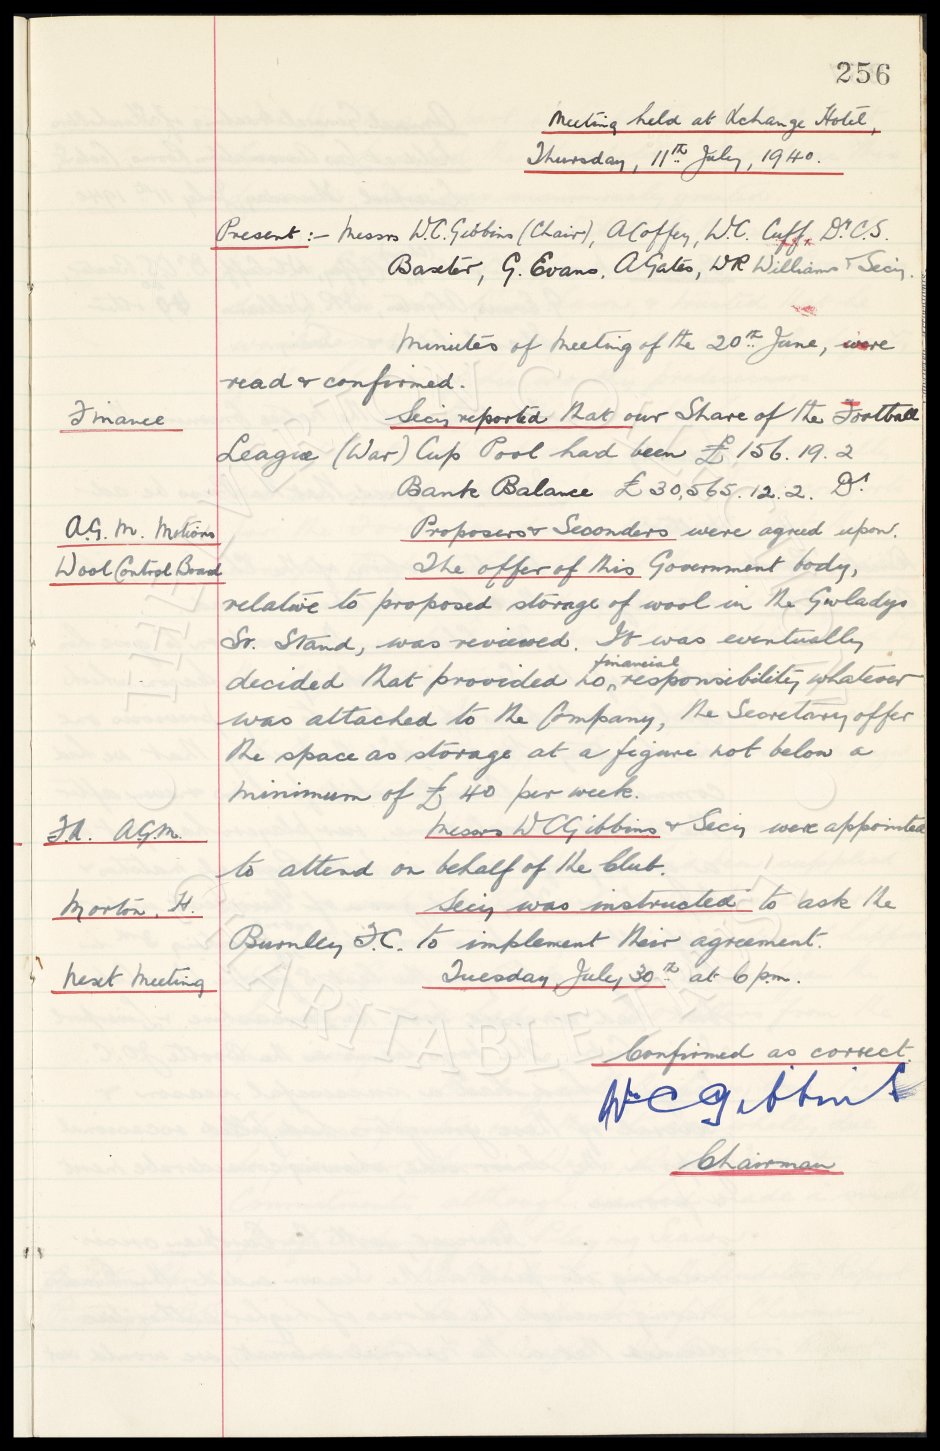 256
Meeting held at Xchange Hotel,
Thursday, 11th July, 1940.
Present :- Messrs W.C. Gibbins (Chair), A Coffey, W.C. Cuff, Dr C.S.
Baxter, G. Evans, A Gates, WR Williams & Secy.
Minutes of Meeting of the 20th June, were
read & confirmed.
Finance Secy reported that our Share of the Football
League (War) Cup Pool had been £156.19.2
Bank Balance £30,565.12.2. Dr
A.G.M. Motions Proposers & Seconders were agreed upon.
Wool Control Board The offer of this Government body,
relative to proposed storage of wool in the Gwladys
St. Stand, was reviewed. It was eventually
decided that provided no financial responsibility whatever
was attached to the Company, the Secretary offer
the space as storage at a figure not below a
minimum of £40 per week.
F.A. A.G.M. Messrs WC Gibbins & Secy were appointed
to attend on behalf of the Club.
Morton. H. Secy was instructed to ask the
Burnley F.C. to implement their agreement.
Next Meeting Tuesday, July 30th at 6 p.m.
Confirmed as correct.
Wm C Gibbins
Chairman
THE EVERTON COLLECTION
CHARITABLE TRUST